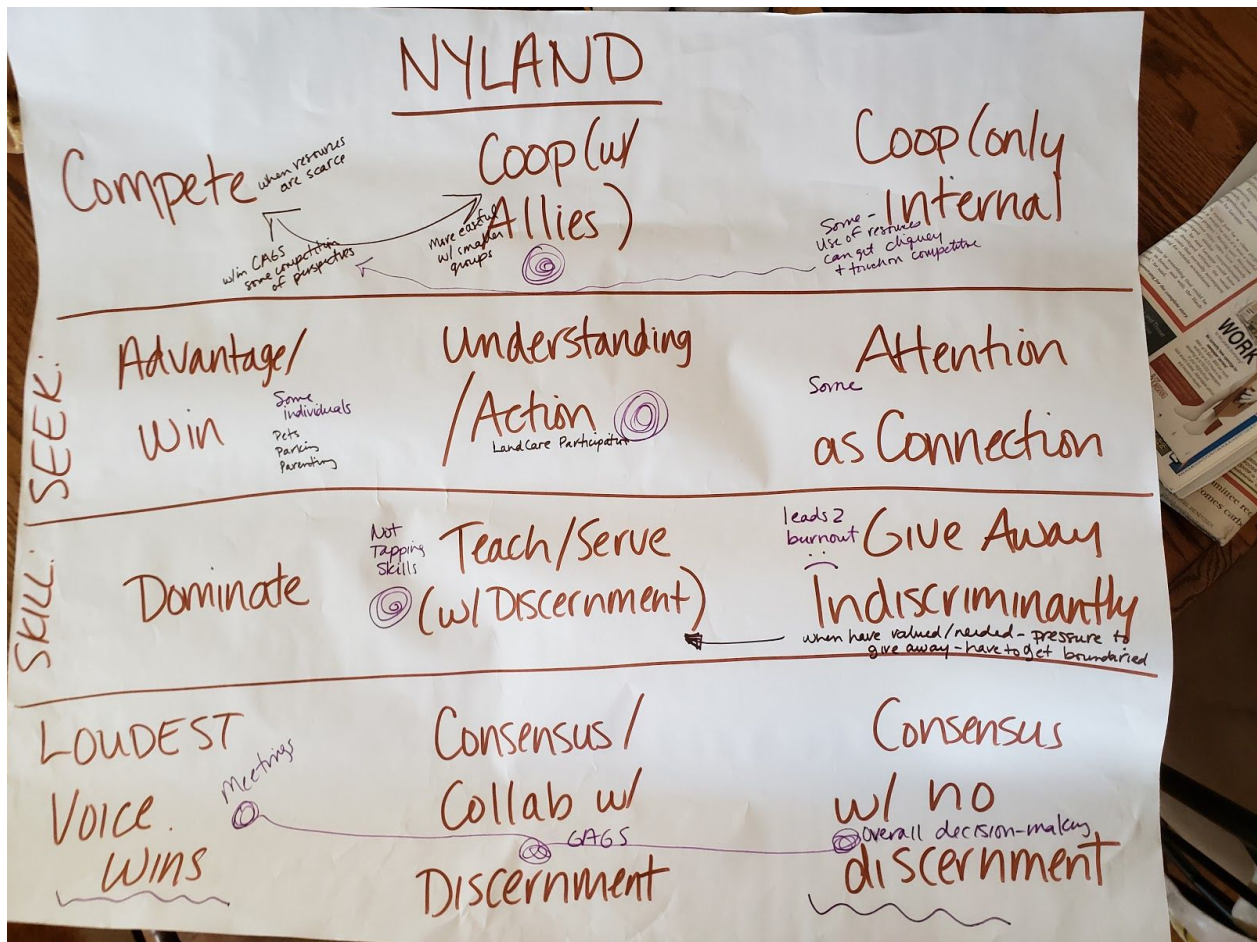 NYLAND
Compete
when resources
are scarce
w/in CAGS
some competition
of perspectives
Coop (w/
Allies)
More easeful
w/ smaller
groups
Coop (only
Internal
Some -
Use of resources
can get cliquey
+ touch on competitive
SEEK:
Advantage/
Win
Some
Individuals
Pets
Parking
Parenting
Understanding
/Action
LandCare Participation
Attention
Some
as Connection
SKILL:
Dominate
Not
Tapping
Skills
Teach/Serve
(w/ Discernment)
leads 2
burnout
Give Away
Indiscriminantly
when have valued/needed - pressure to
give away - have to get boundaried
LOUDEST
Voice
Wins
Meetings
Consensus/
Collab w/
GAGS
Discernment
Consensus
w/ no
Overall decision-making
discernment
WORK